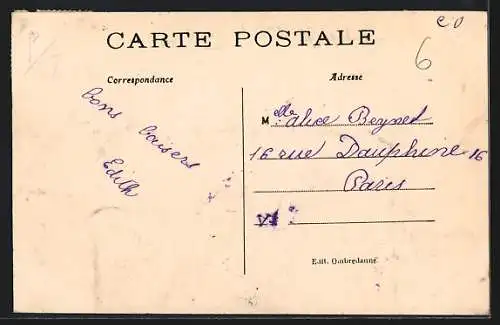 CARTE POSTALE
Correspondance
Adresse
bons baisers
Edith
Mlle Alice Beynet
16 rue Dauphine 16
Paris
VI
Edit. Ombredanne
6